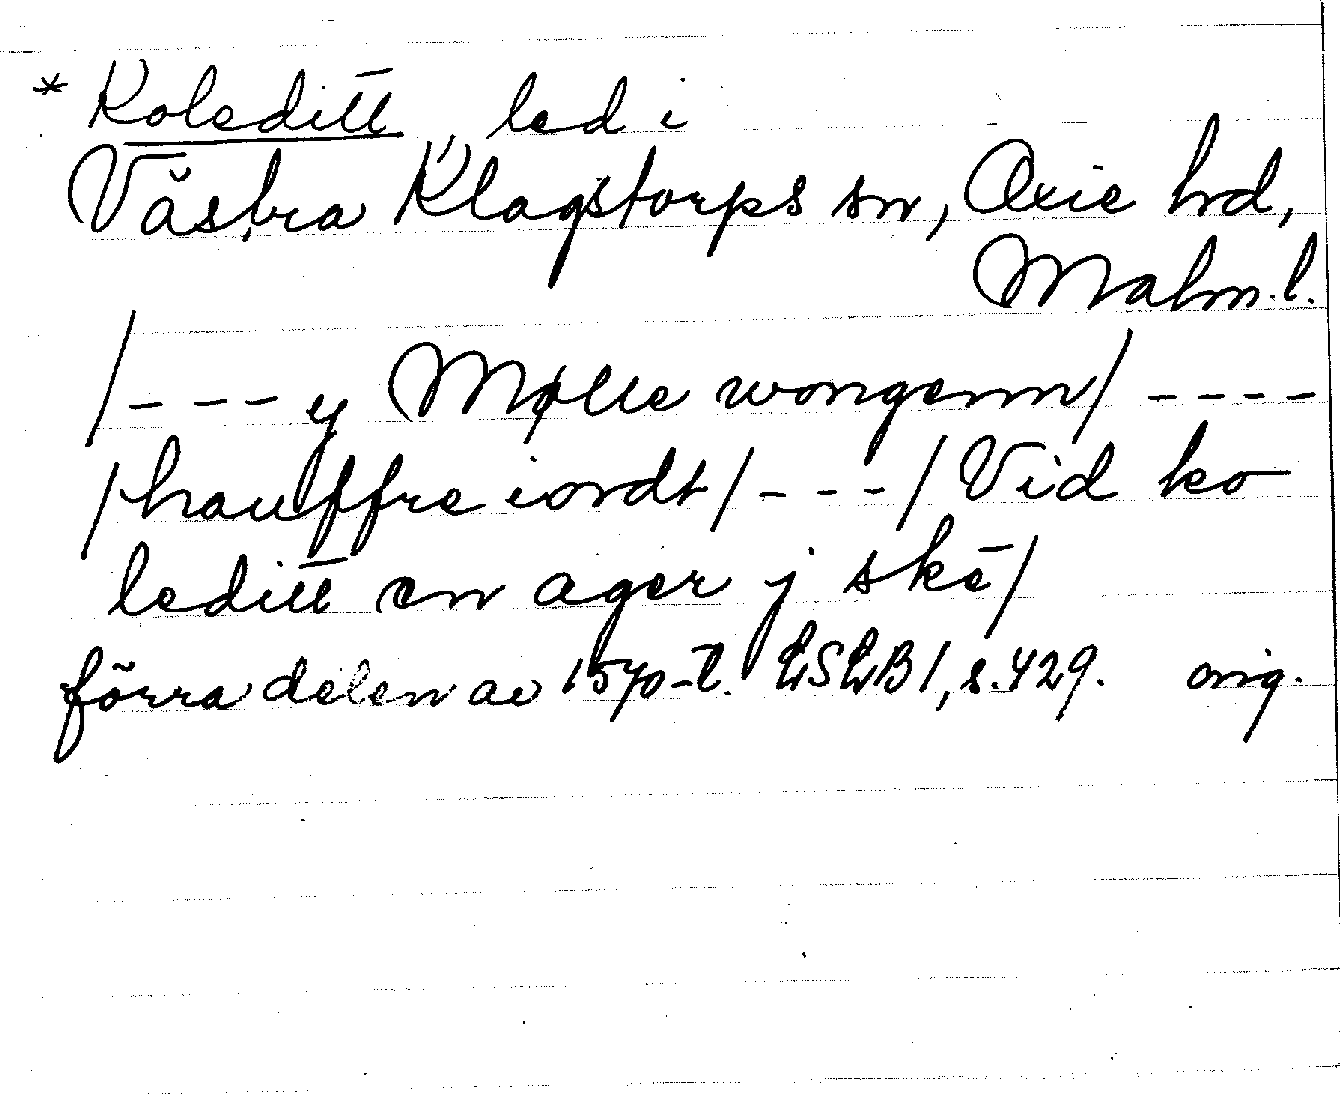 * Koleditt, led i
Västra Klagstorps sn, Oxie hd,
Malm.l.
/---y Mølle wongenn/----
/hauffre iordt/---/Vid ko
leditt en ager j skē/
förra delen av 1570-t. LSLB I, s. 429. orig.